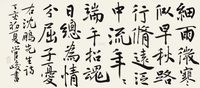 細雨微寒
似早秋路
行遠泛
中流年年
端午招魂
日總為情
分屈子憂
右沈鵬先生詩
初夏